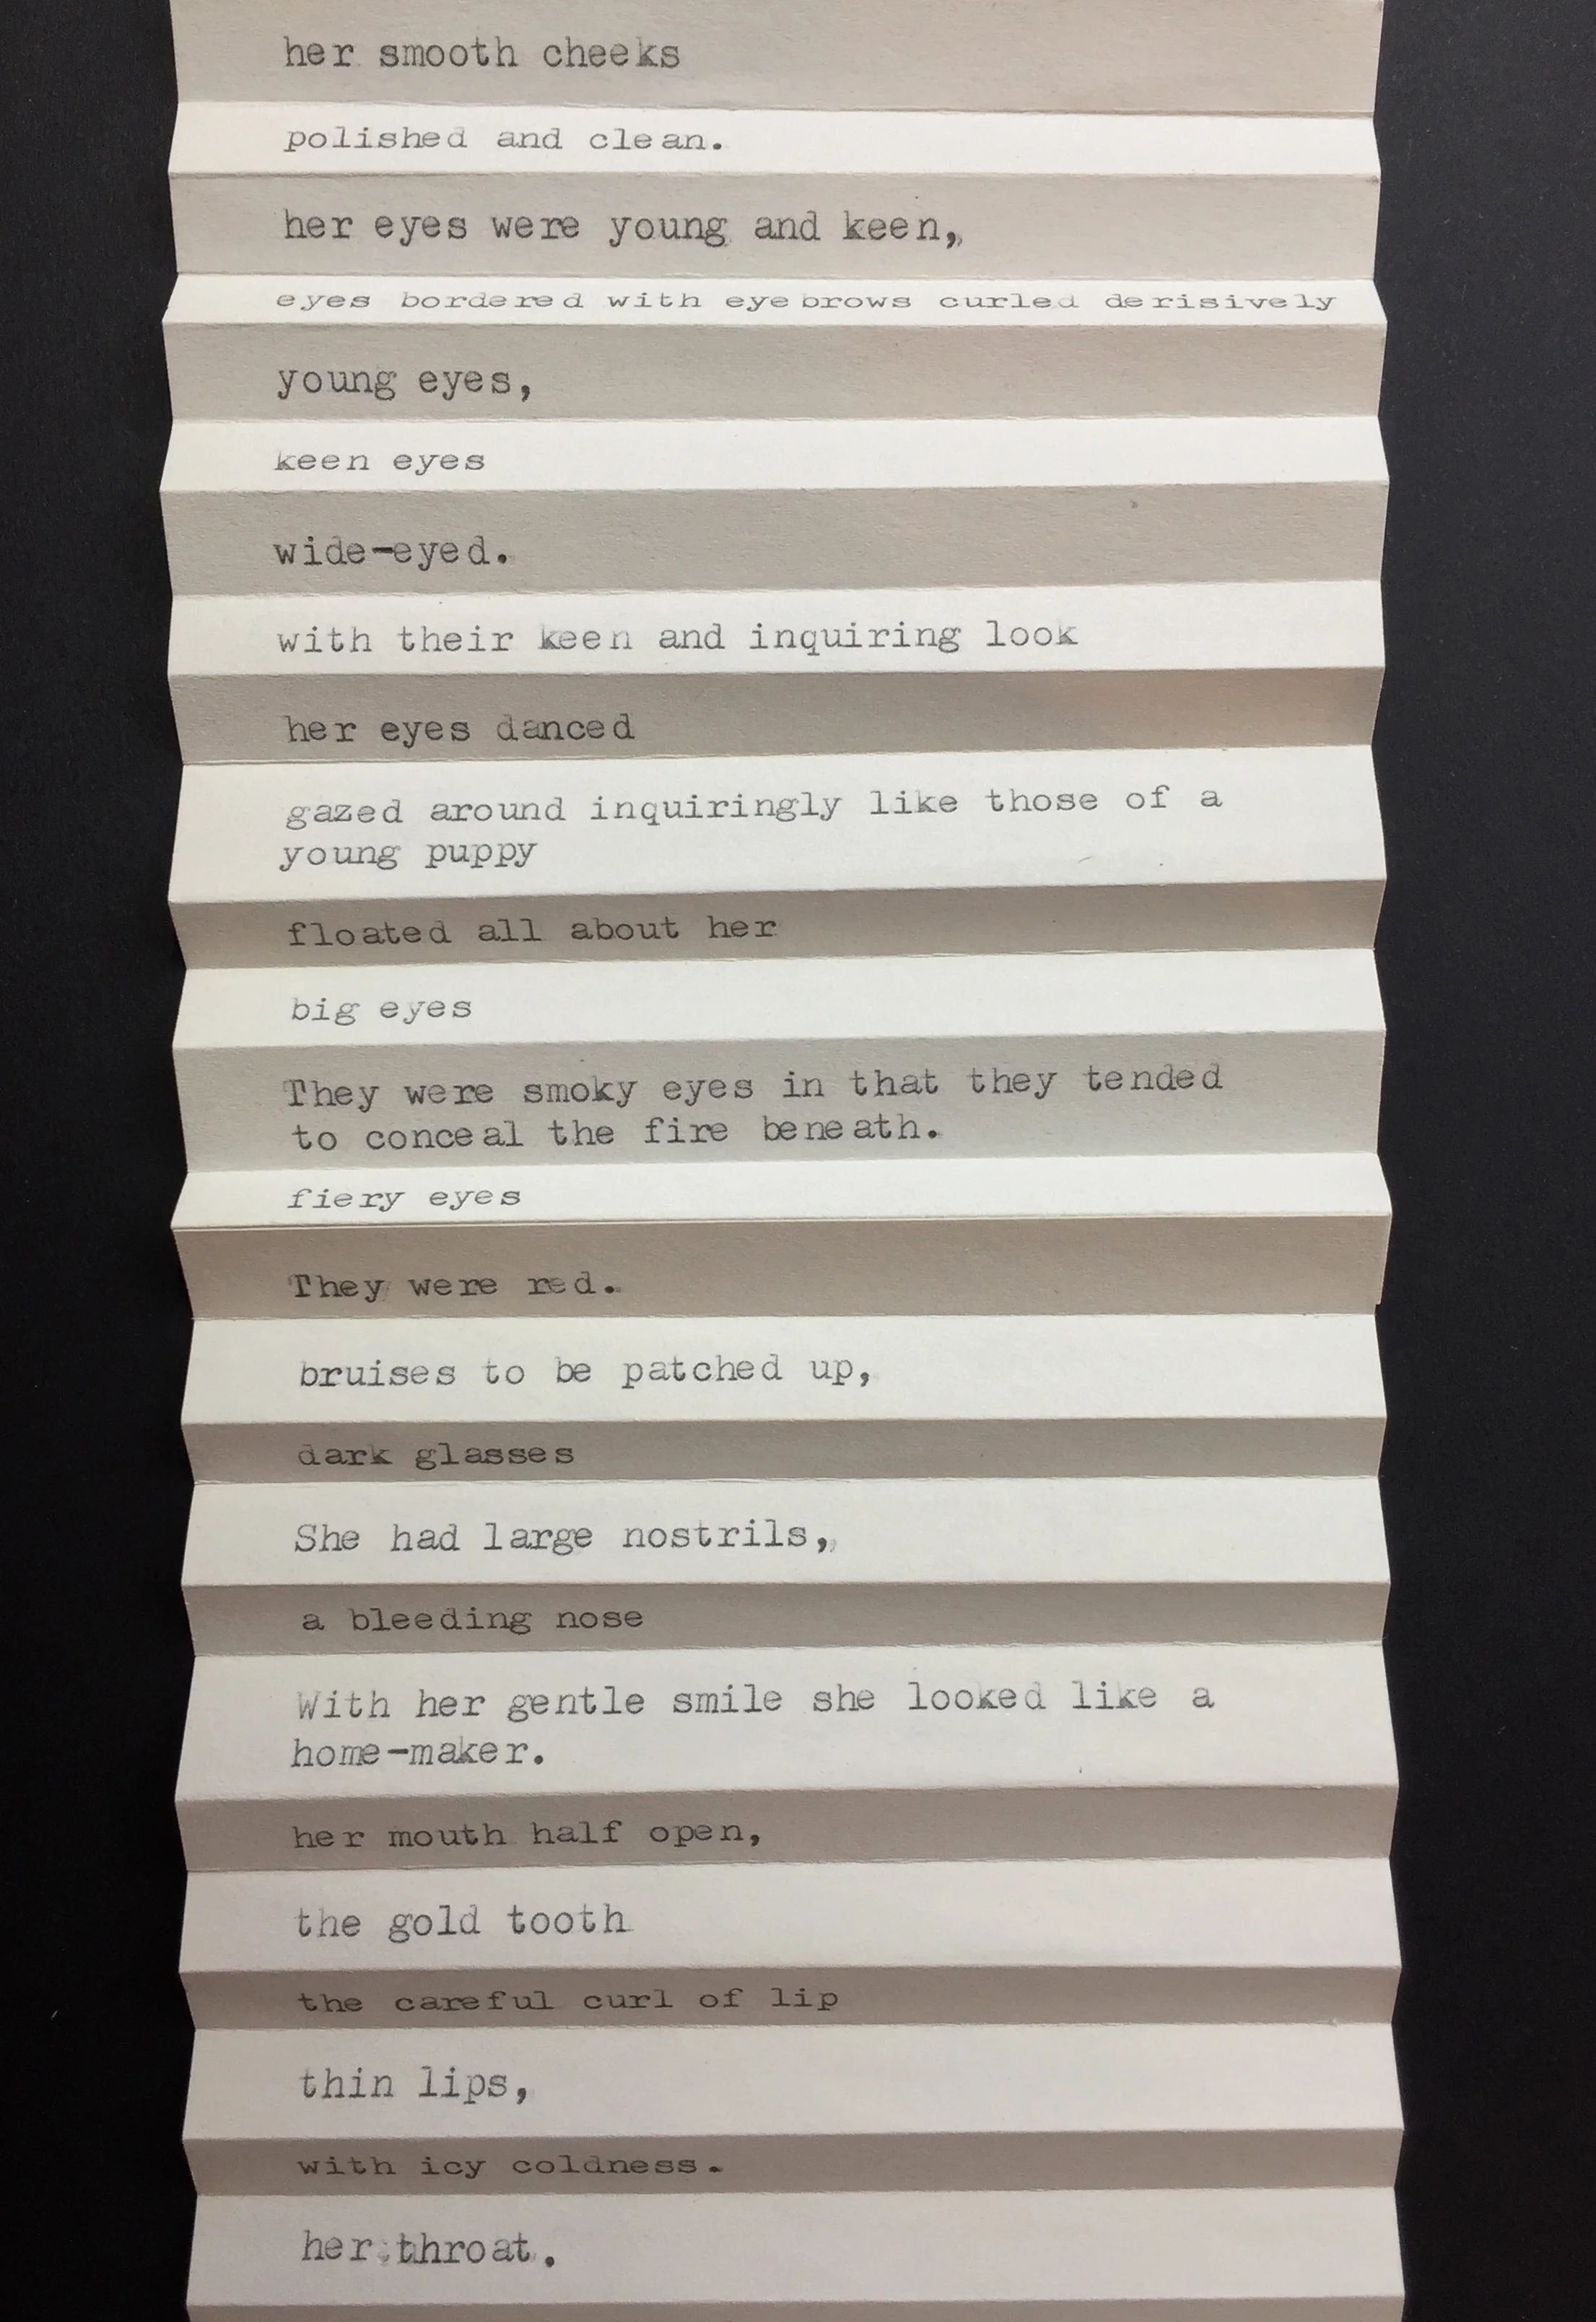 her smooth cheeks
polished and clean.
her eyes were young and keen,
eyes bordered with eyebrows curled derisively
young eyes,
keen eyes
wide-eyed.
with their keen and inquiring look
her eyes danced
gazed around inquiringly like those of a
young puppy
floated all about her
big eyes
They were smoky eyes in that they tended
to conceal the fire beneath.
fiery eyes
They were red.
bruises to be patched up,
dark glasses
She had large nostrils,
a bleeding nose
With her gentle smile she looked like a
home-maker.
her mouth half open,
the gold tooth
the careful curl of lip
thin lips,
with icy coldness.
her throat.